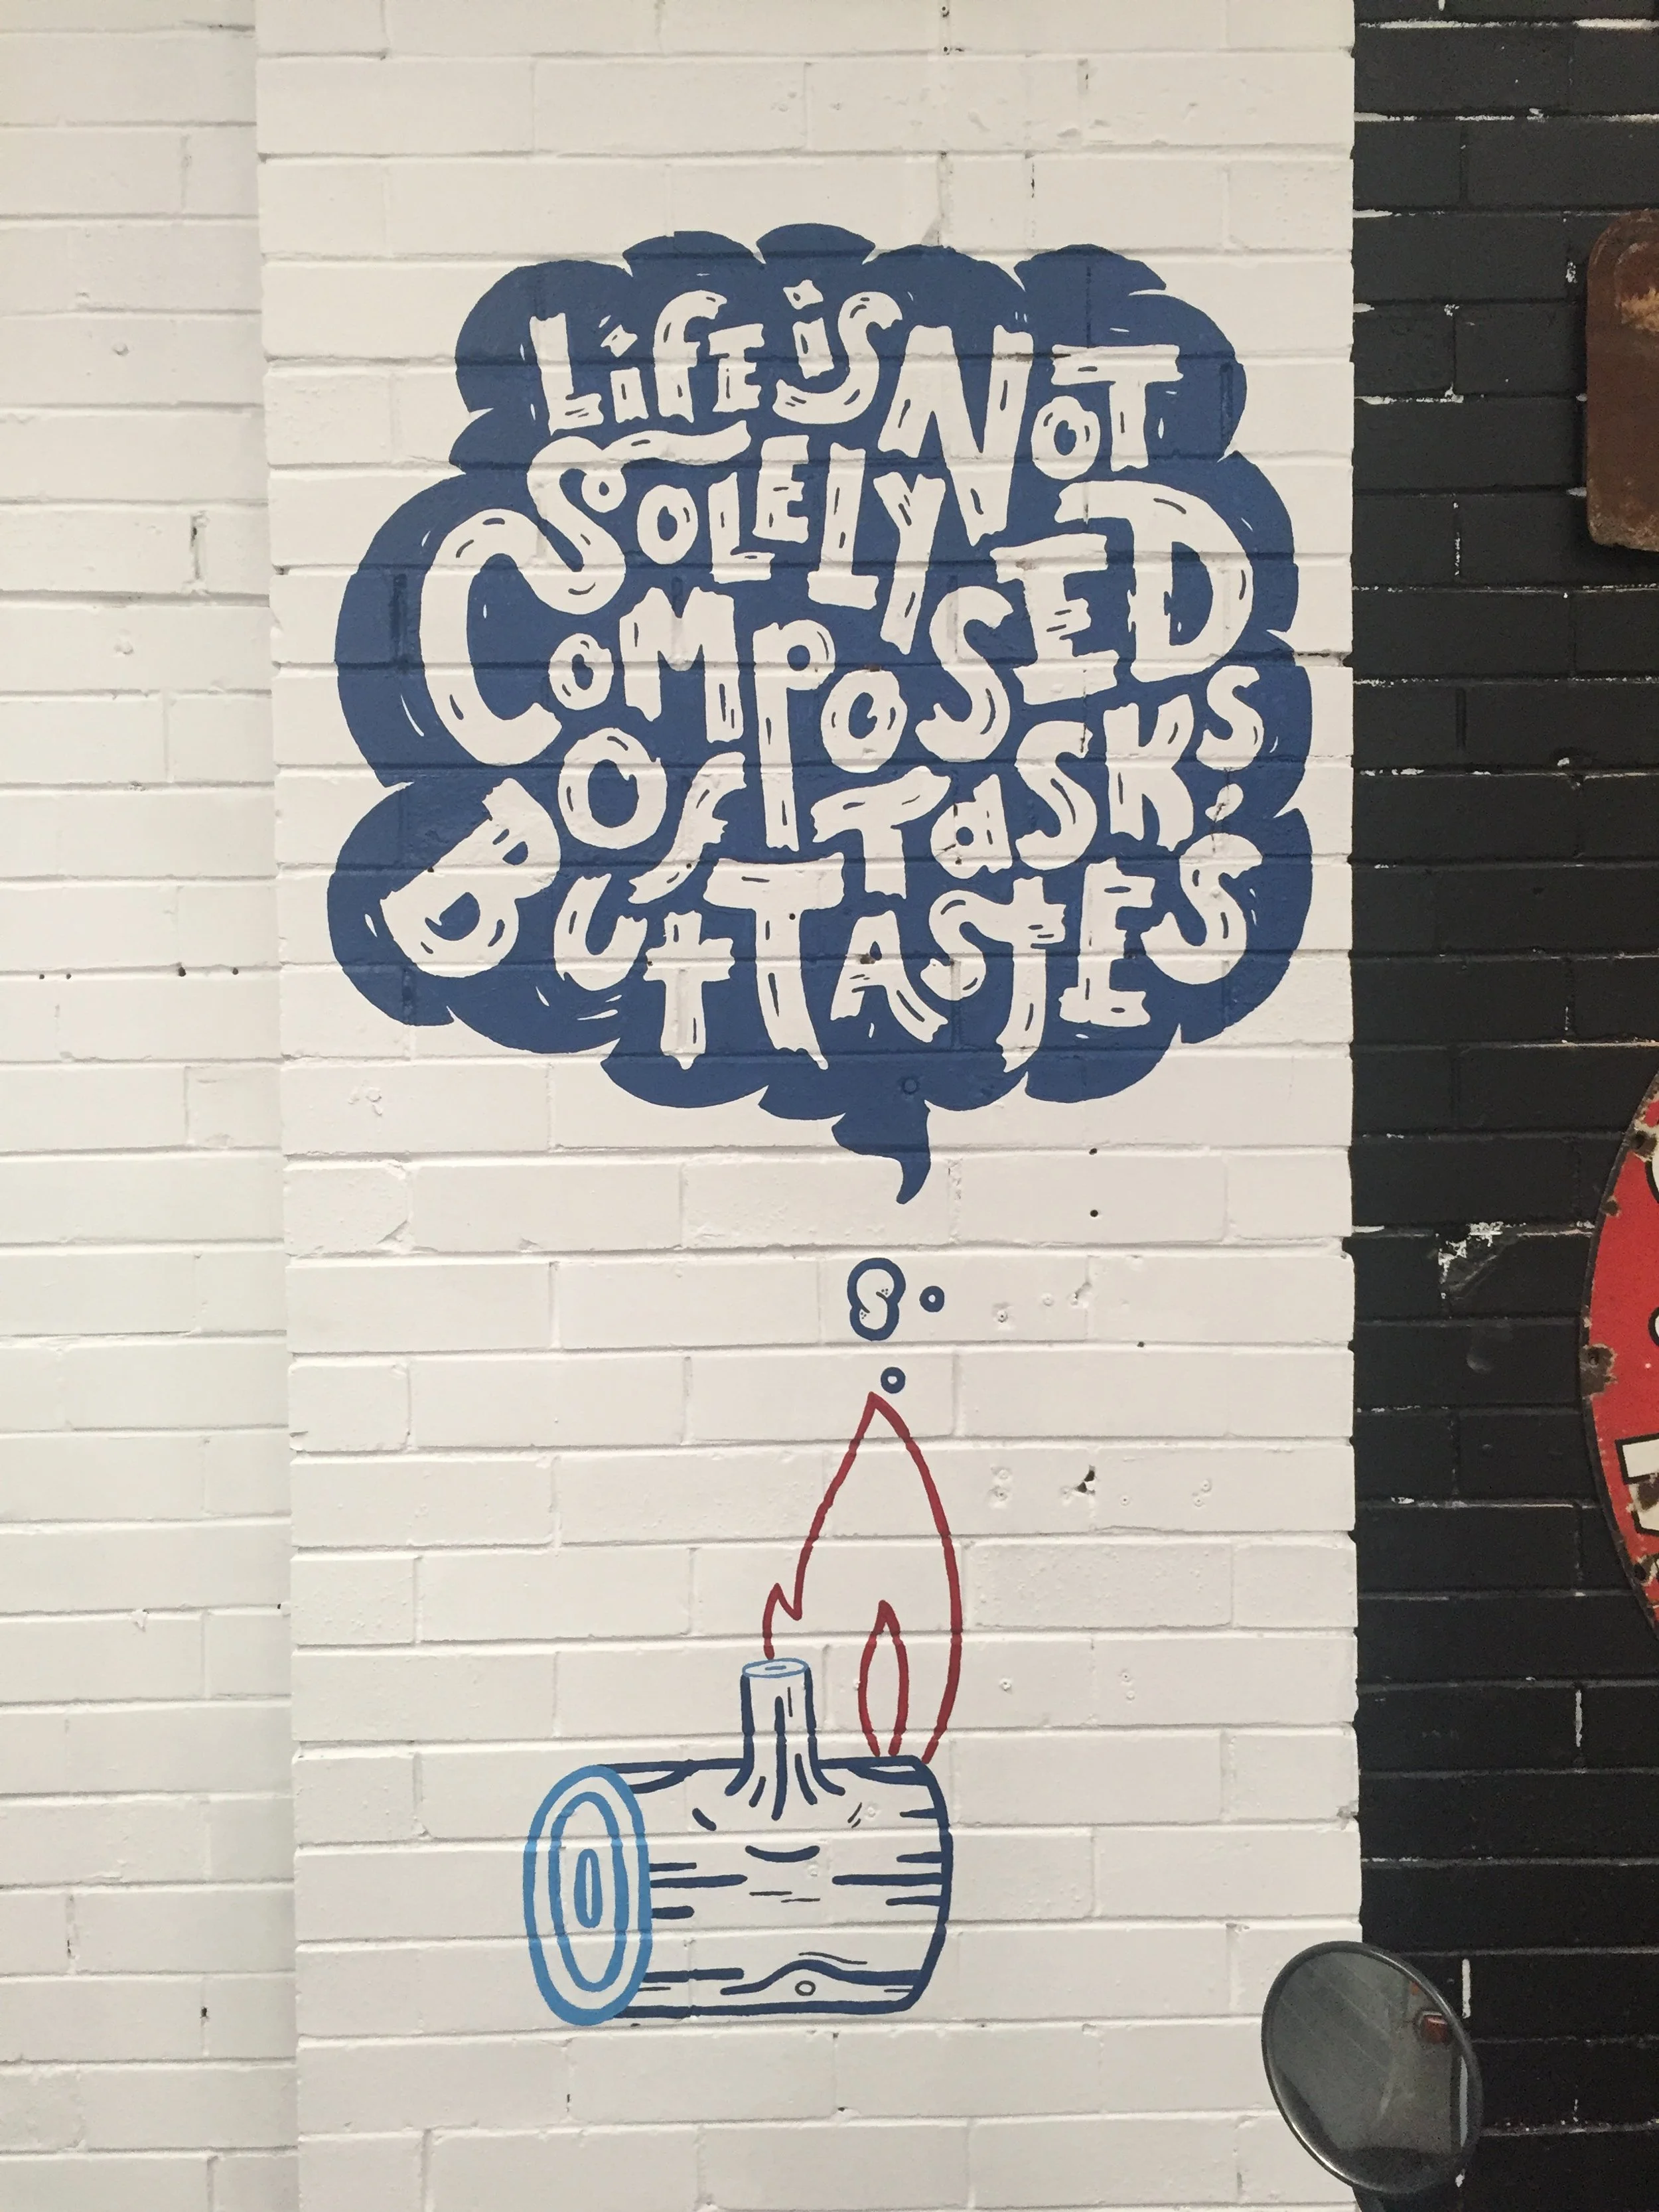 Life is Not
Solely
Composed
Of Tasks,
But Tastes